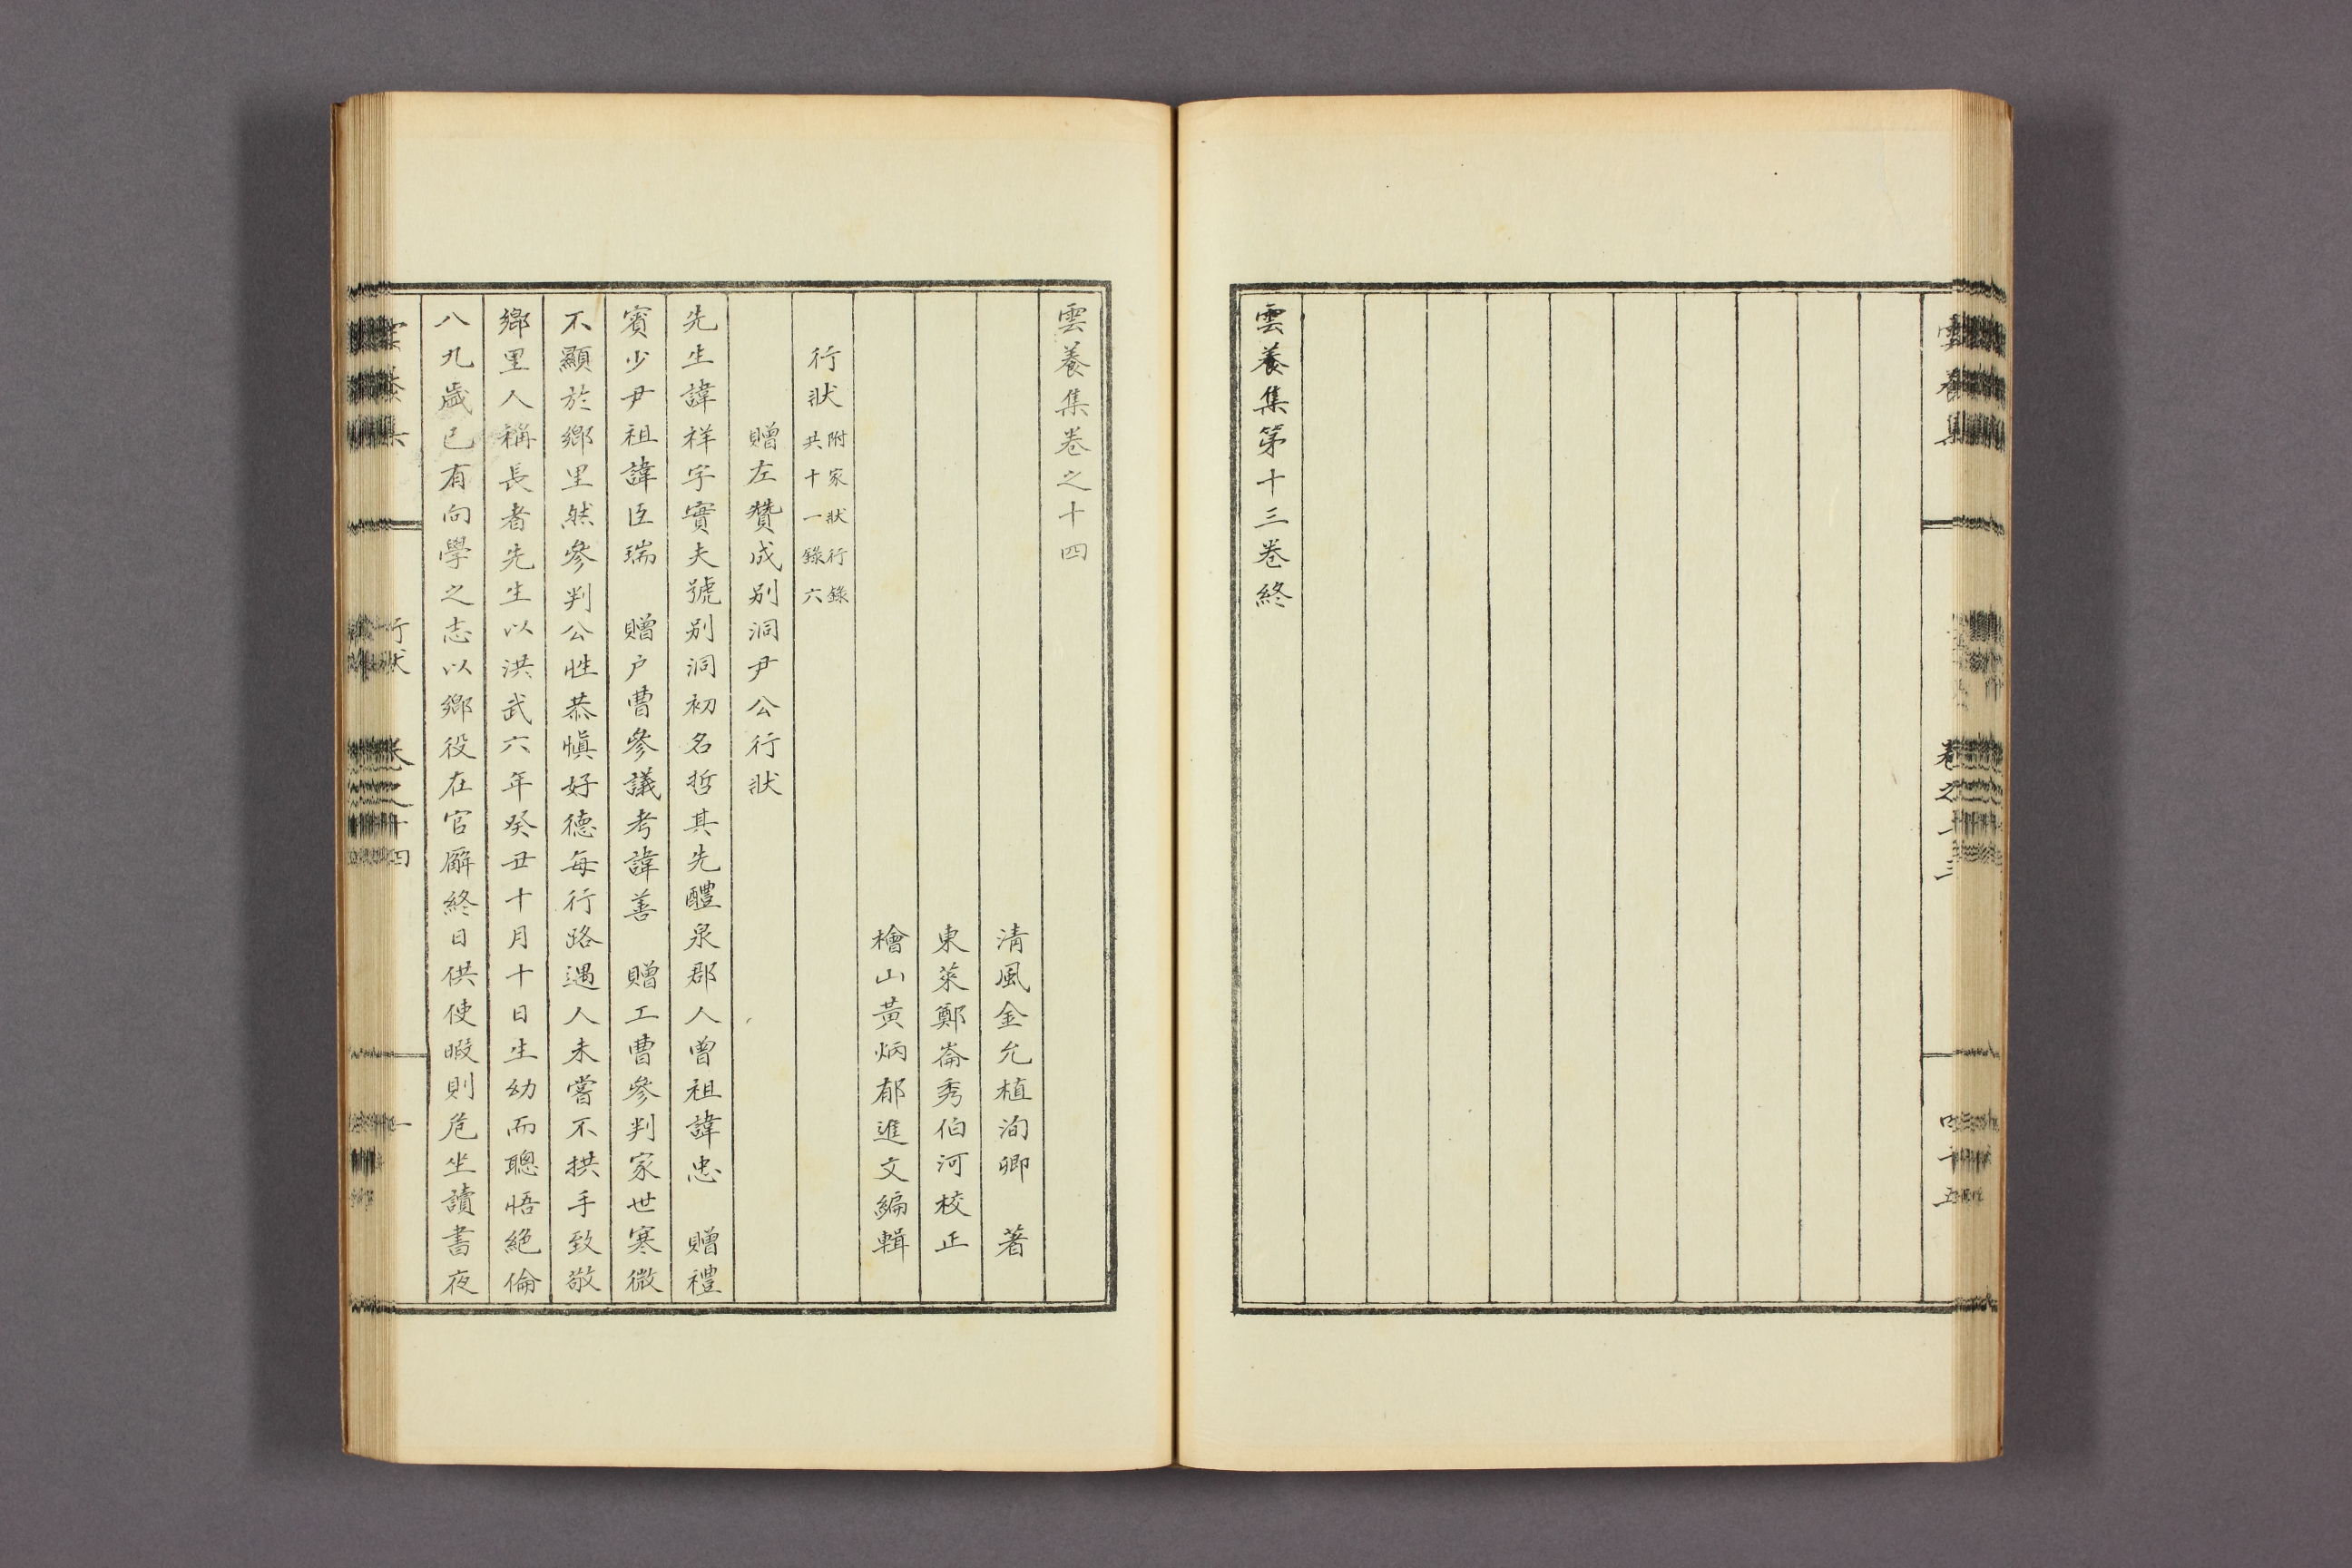 雲養集
卷之十三
四十五
雲養集第十三卷終
雲養集卷之十四
清風金允植洵卿 著
東萊鄭崙秀伯河校正
檜山黃炳郁進文編輯
行狀 附家狀行錄
共十一錄六
贈左贊成別洞尹公行狀
先生諱祥字實夫號別洞初名哲其先醴泉郡人曾祖諱忠 贈禮
賓少尹祖諱臣瑞 贈戶曹參議考諱善 贈工曹參判家世寒微
不顯於鄉里然參判公性恭愼好德每行路遇人未嘗不拱手致敬
鄉里人稱長者先生以洪武六年癸丑十月十日生幼而聰悟絕倫
八九歲已有向學之志以鄉役在官廨終日供使暇則危坐讀書夜
行狀
卷之十四
一